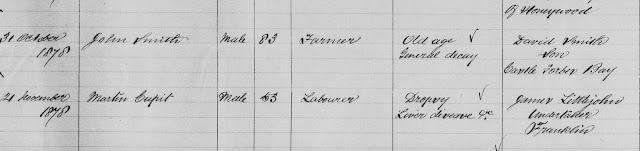 Of Honeywood
31 October 1878 John Smith Male 83 Farmer Old age General decay David Smith Son Castle Forbes Bay
21 November 1878 Martin Cupit Male 53 Labourer Dropsy Liver disease &c James Littlejohn Undertaker Franklin